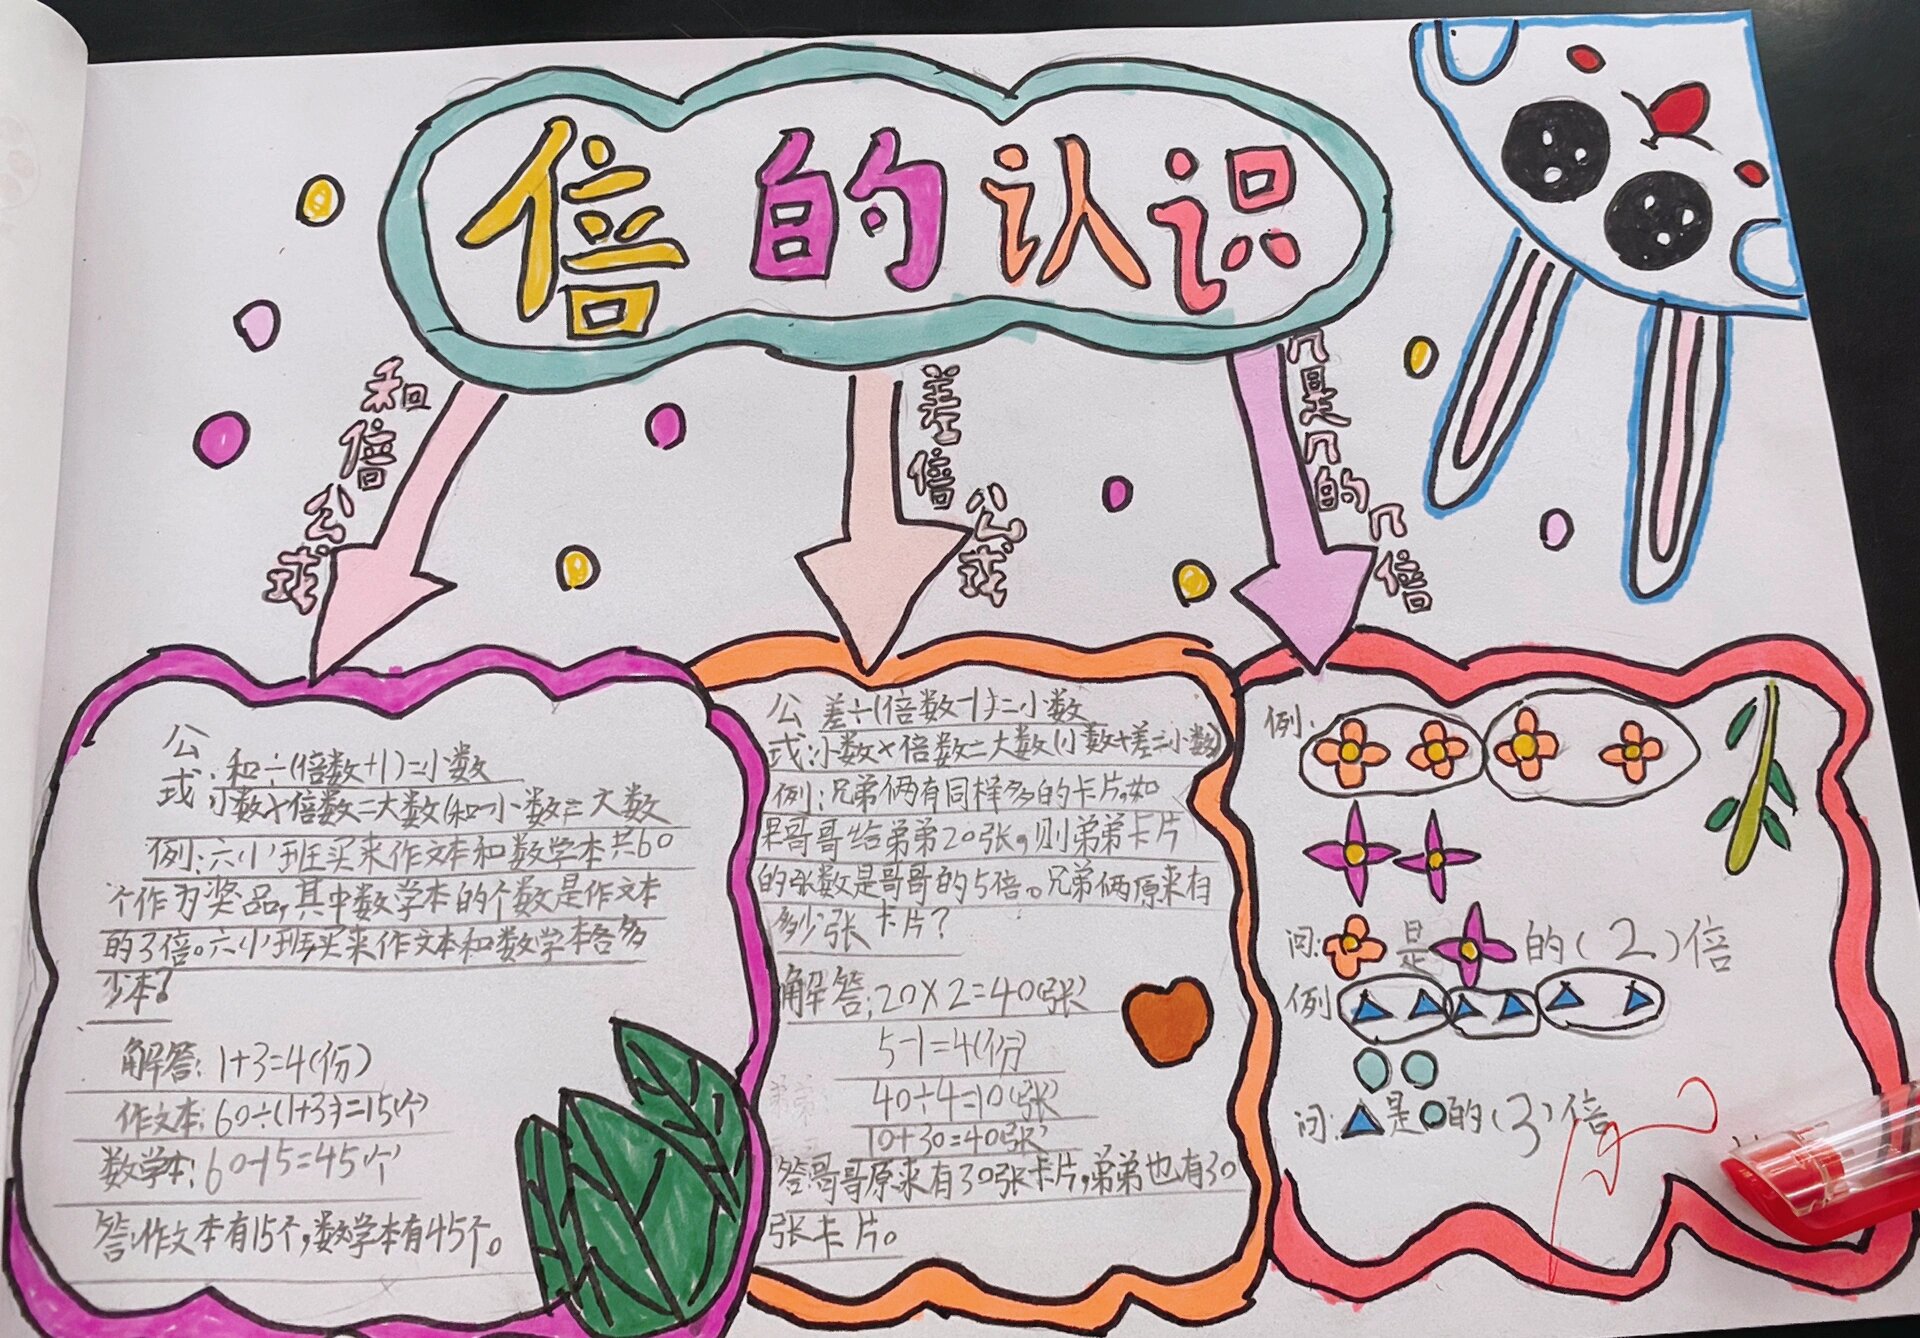 倍的认识
和倍公式
差倍公式
几是几的几倍
公式:和÷(倍数+1)=小数
小数×倍数=大数(和-小数=大数
例:六(小)班买来作文本和数学本共60
个作为奖品,其中数学本的个数是作文本
的3倍。六(小)班买来作文本和数学本各多
少本?
解答:1+3=4(份)
作文本:60÷(1+3)=15(个)
数学本:60-15=45(个)
答:作文本有15个,数学本有45个。
公式:差÷(倍数-1)=小数
小数×倍数=大数(小数+差=小数)
例:兄弟俩有同样多的卡片,如
果哥哥给弟弟20张,则弟弟卡片
的张数是哥哥的5倍。兄弟俩原来有
多少张卡片?
解答:20×2=40(张)
5-1=4(份)
40÷4=10(张)
10+30=40(张)
答哥哥原来有30张卡片,弟弟也有30
张卡片。
例:
问: 是 的(2)倍
例
问: 是 的(3)倍